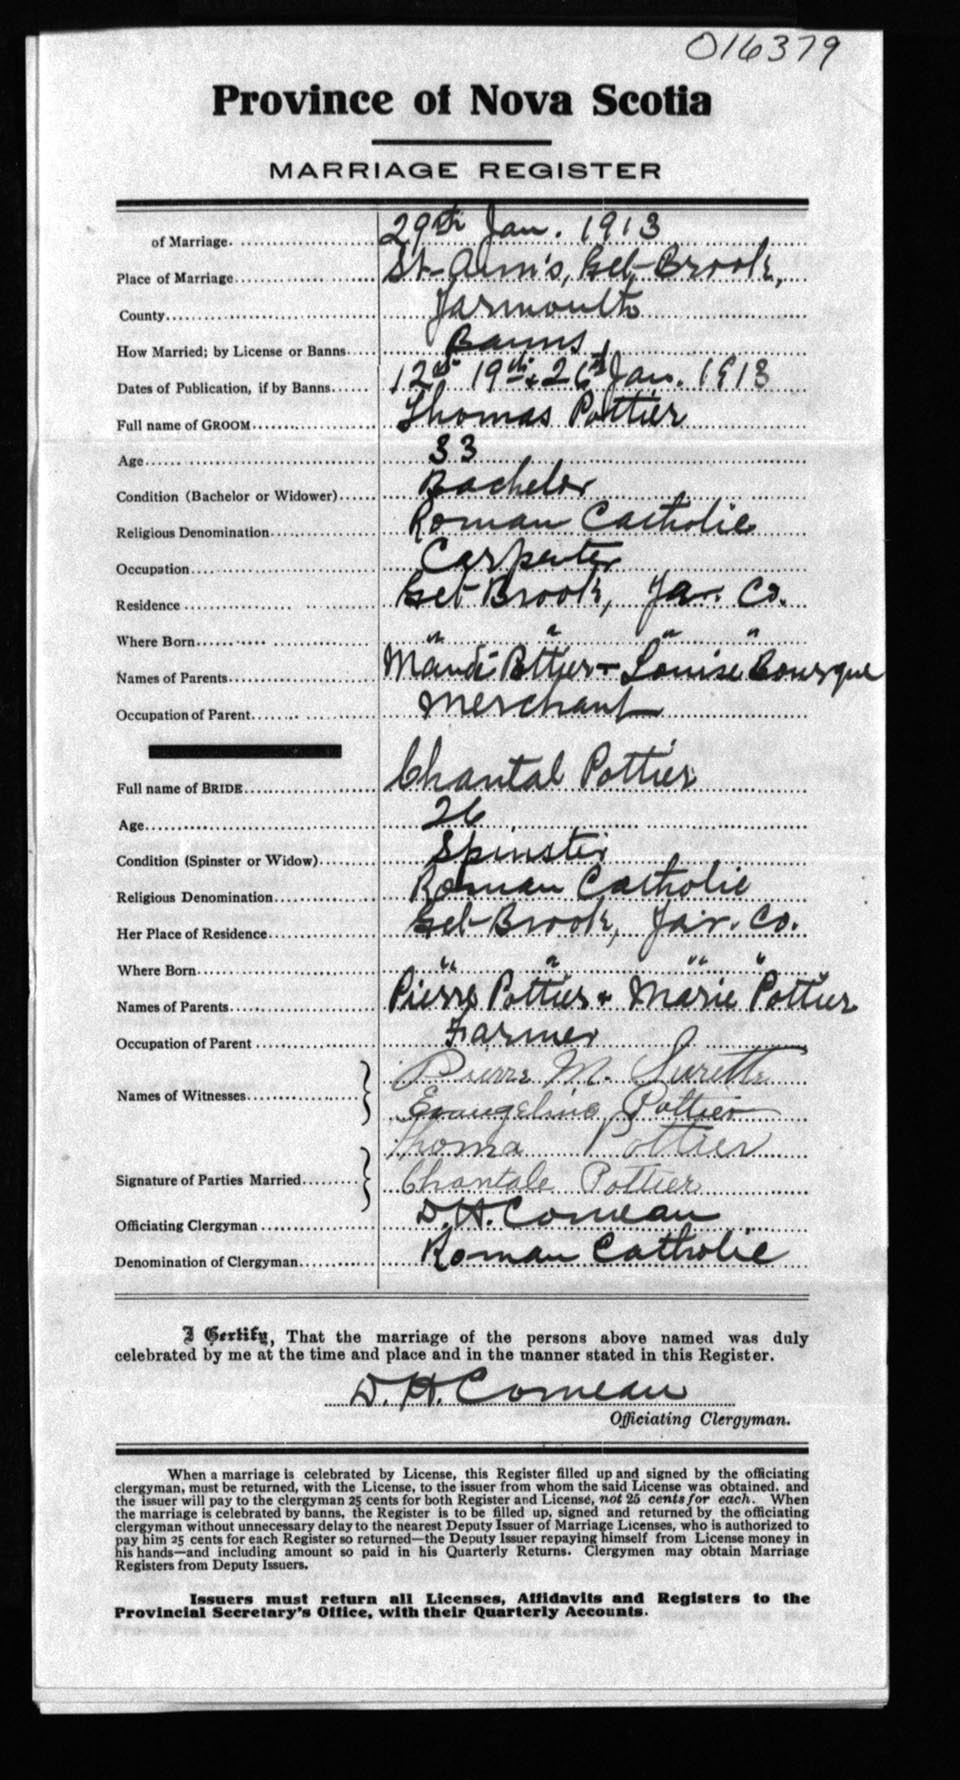 016379
Province of Nova Scotia
MARRIAGE REGISTER
of Marriage. 29th Jan. 1913
Place of Marriage St-Ann's, Eel-Brook,
County Yarmouth
How Married; by License or Banns Banns
Dates of Publication, if by Banns 12th 19th + 26th Jan. 1913
Full name of GROOM Thomas Pottier
Age 33
Condition (Bachelor or Widower) Bachelor
Religious Denomination Roman Catholic
Occupation Carpenter
Residence Eel-Brook, Yar. Co.
Where Born " " " "
Names of Parents Mandé Pottier + Louise Bourque
Occupation of Parent Merchant
Full name of BRIDE Chantal Pottier
Age 26
Condition (Spinster or Widow) Spinster
Religious Denomination Roman Catholic
Her Place of Residence Eel-Brook, Yar. Co.
Where Born " " " "
Names of Parents Pierre Pottier + Marie Pottier
Occupation of Parent Farmer
Names of Witnesses Pierre M. Surette
Evangeline Pottier
Signature of Parties Married Thoma Pottier
Chantale Pottier
Officiating Clergyman D. H. Comeau
Denomination of Clergyman Roman Catholic
I Certify, That the marriage of the persons above named was duly
celebrated by me at the time and place and in the manner stated in this Register.
D. H. Comeau
Officiating Clergyman.
When a marriage is celebrated by License, this Register filled up and signed by the officiating
clergyman, must be returned, with the License, to the issuer from whom the said License was obtained, and
the issuer will pay to the clergyman 25 cents for both Register and License, not 25 cents for each. When
the marriage is celebrated by banns, the Register is to be filled up, signed and returned by the officiating
clergyman without unnecessary delay to the nearest Deputy Issuer of Marriage Licenses, who is authorized to
pay him 25 cents for each Register so returned—the Deputy Issuer repaying himself from License money in
his hands—and including amount so paid in his Quarterly Returns. Clergymen may obtain Marriage
Registers from Deputy Issuers.
Issuers must return all Licenses, Affidavits and Registers to the
Provincial Secretary's Office, with their Quarterly Accounts.